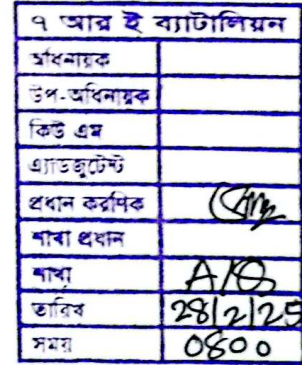 ৭ আর ই ব্যাটালিয়ন
অধিনায়ক
উপ-অধিনায়ক
কিউ এম
এ্যাডজুটেন্ট
প্রধান করণিক
শাখা প্রধান
শাখা A/Q
তারিখ 28/2/25
সময় 0800